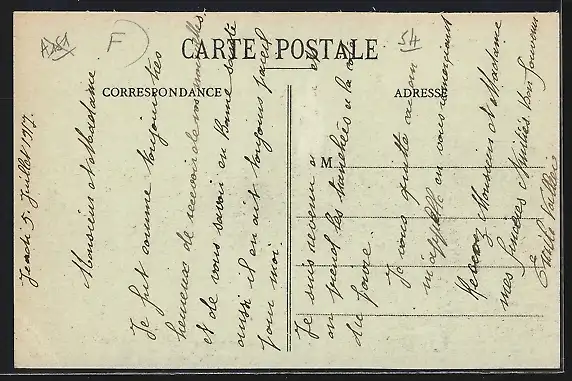 A781
F
54
CARTE POSTALE
CORRESPONDANCE
ADRESSE
M
Jeudi 5 Juillet 1917.
Monsieur et Madame
Je fut comme toujour très
heureux de recevoir de vos nouvelles
et de vous savoir en Bonne santé
aussi il en ait toujours pareil
pour moi.
Je suis revenu et
on prend les tranchées à la
du
Je vous quitte car on
m'appelle en vous remerciant
Recevez Monsieur et Madame
mes sincères Amitiés. Bon Souvenir